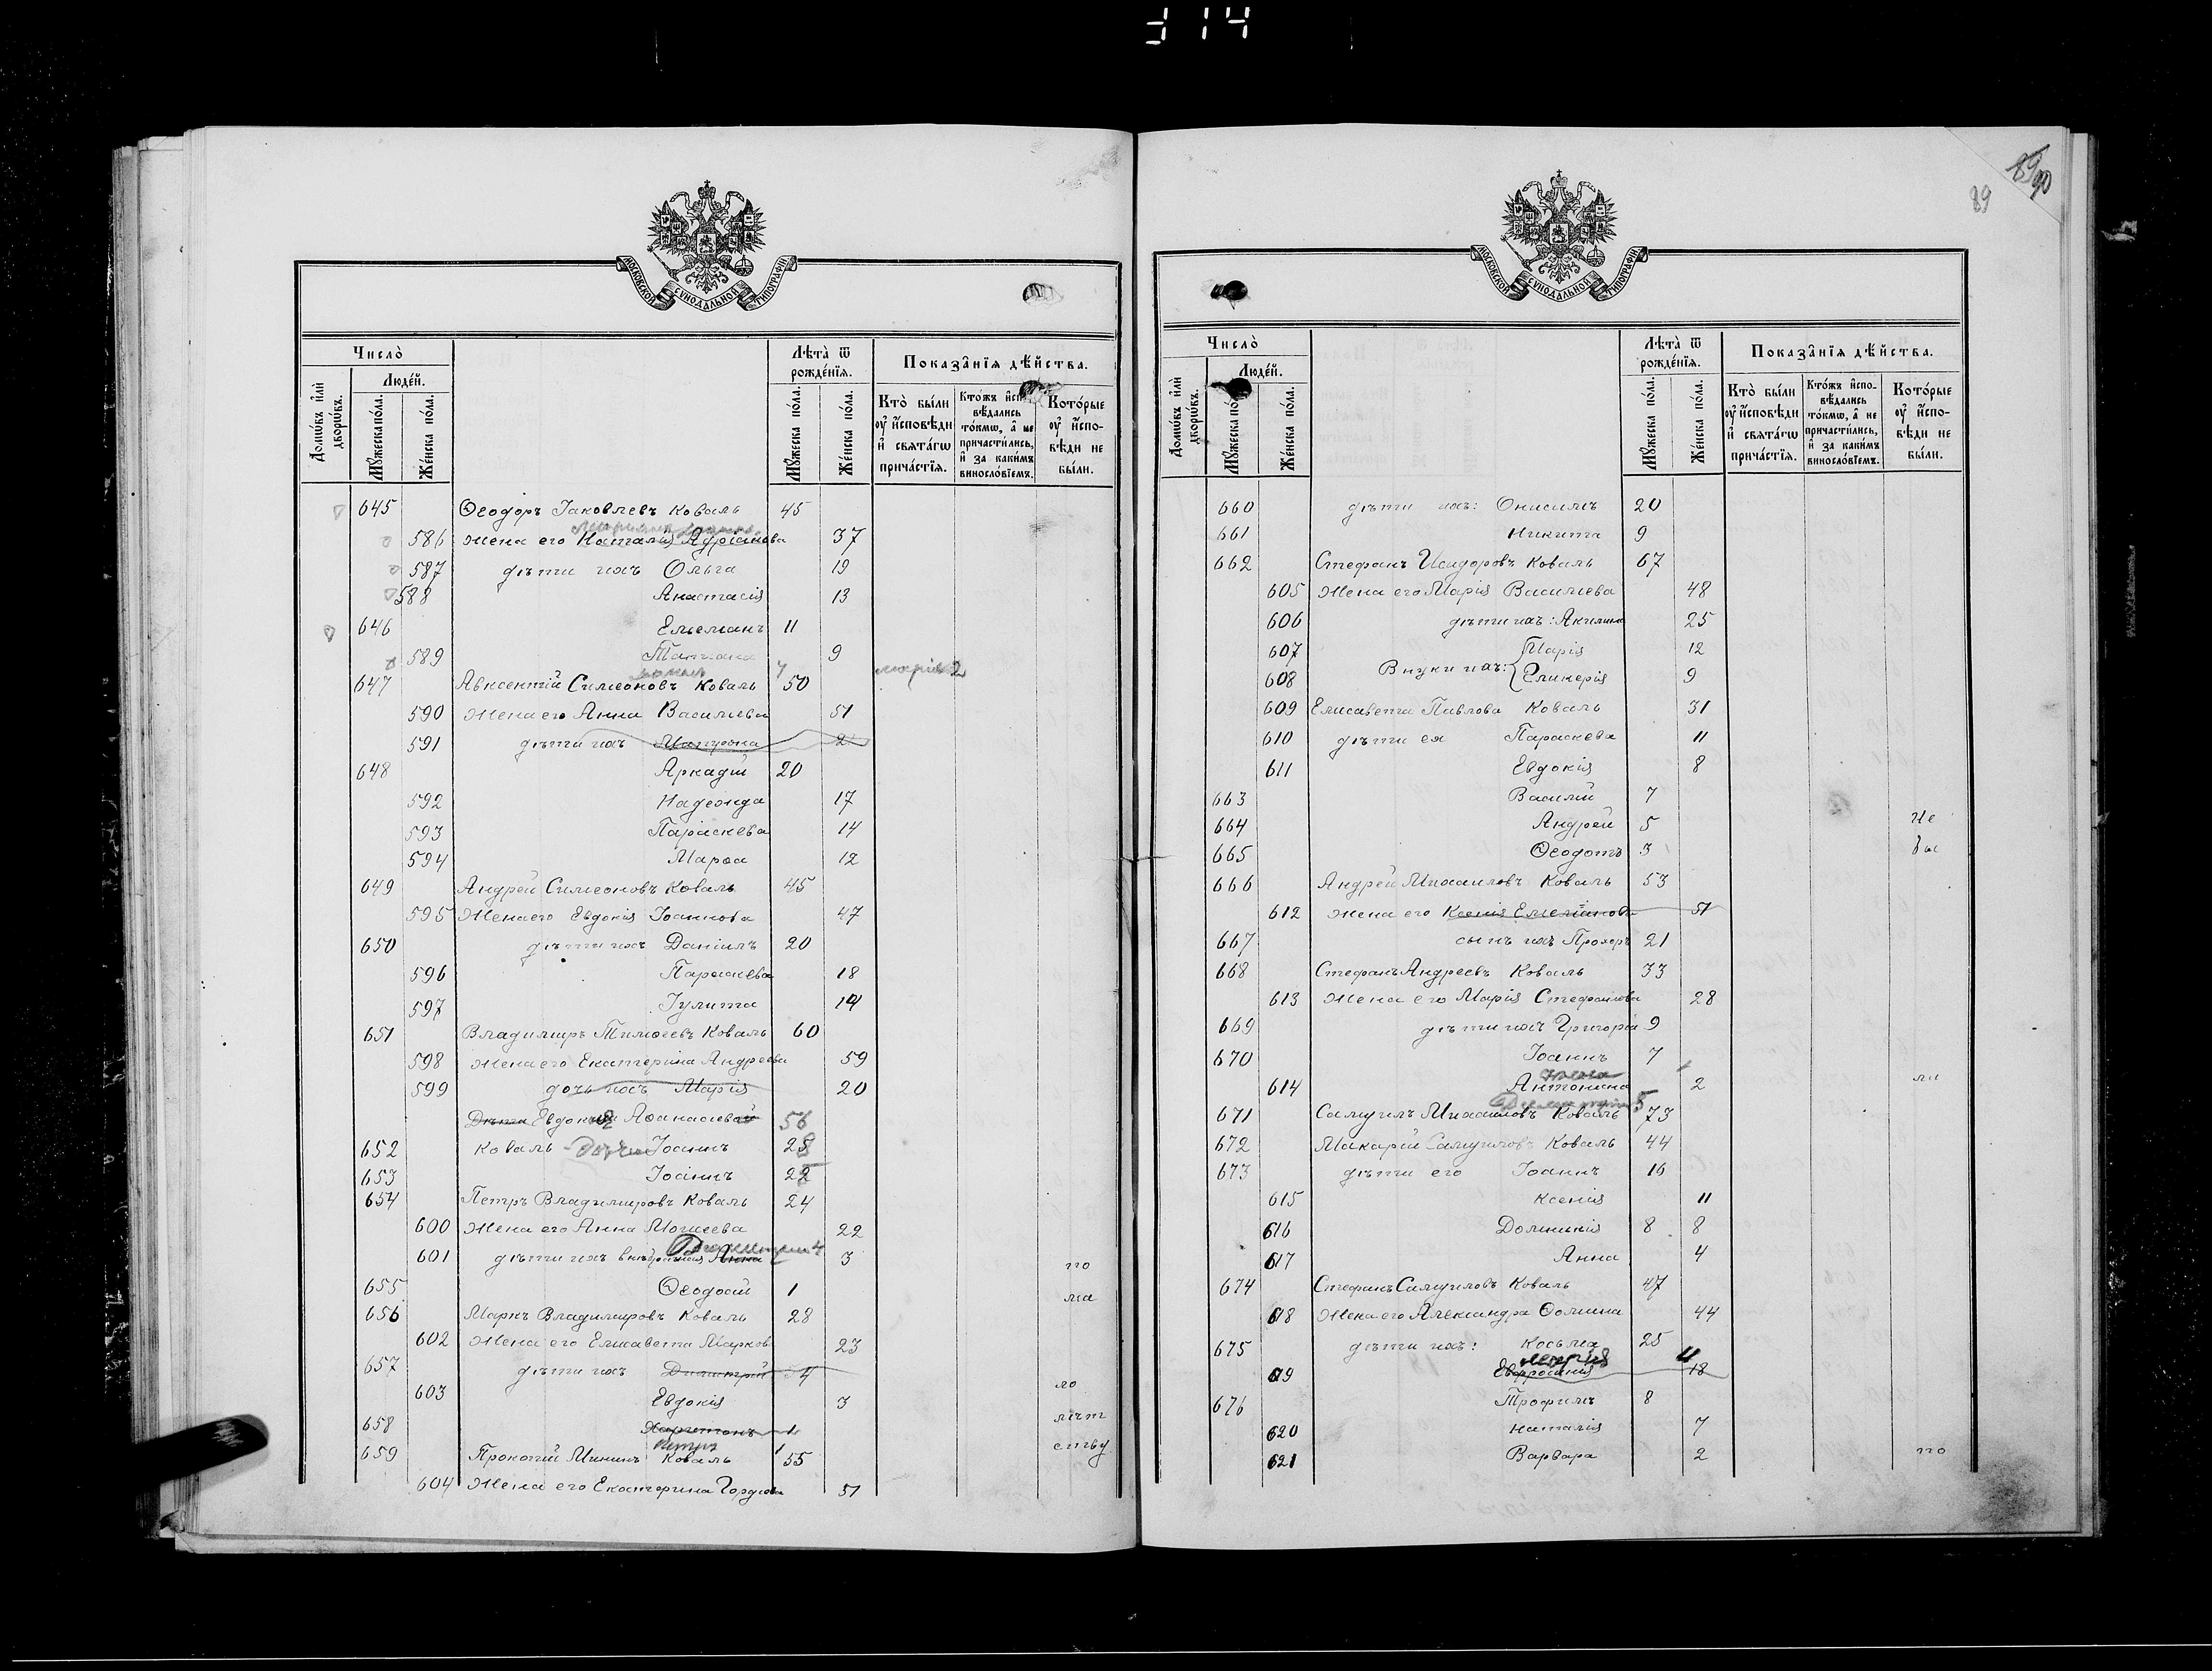 314
МОСКОВСКОЙ СѴНОДАЛЬНОЙ ТИПОГРАФІИ
Число̀
Лѣта̀ ѿ рожде́нїѧ.
Показа̑нїѧ дѣ́йства.
Домѡ́въ и҆лѝ дворѡ́въ.
Люде́й.
Мꙋ́жеска по́ла.
Же́нска по́ла.
Мꙋ́жеска по́ла.
Же́нска по́ла.
Кто̀ бы́ли ᲂу҆ и҆́сповѣди и҆ свѧта́гѡ прича́стїѧ.
Кто́жъ и҆спо-вѣ́дались то́кмѡ, а҆ не причасти́лись, и҆ за каки́мъ винословїемъ.
Кото́рые ᲂу҆ и҆́спо-вѣди не бы́ли.
645 Ѳеодоръ Іаковлевъ Коваль 45
586 Жена его Наталія Адріанова 37
587 дѣти ихъ Ольга 19
588 Анастасія 13
646 Емеліанъ 11
589 Татіана 9
марія 2
647 Авксентій Симеоновъ Коваль 50
590 Жена его Анна Васильева 51
591 дѣти ихъ Матрона 2
648 Аркадій 20
592 Надежда 17
593 Параскева 14
594 Марѳа 12
649 Андрей Симеоновъ Коваль 45
595 Жена его Евдокія Іоаннова 47
650 дѣти ихъ Даніилъ 20
596 Параскева 18
597 Іулита 14
651 Владимиръ Тимоѳеевъ Коваль 60
598 Жена его Екатерина Андреева 59
599 дочь ихъ Марія 20
Дѣти Евдокія Аѳанасіевой 56
652 Коваль Іоаннъ 28
653 Іоаннъ 22
654 Петръ Владимировъ Коваль 24
600 Жена его Анна Моисеева 22
601 дѣти ихъ Анна 3 по
655 Ѳеодосій 1 ма
656 Маркъ Владимировъ Коваль 28
602 Жена его Елисавета Марков 23
657 дѣти ихъ Димитрій 4 ло
603 Евдокія 3
658 Харитонъ 1 лѣт
Петръ 1
659 Прокопій Мининъ Коваль 55 ству
604 Жена его Екатерина Гордіева 51
89 90
89
МОСКОВСКОЙ СѴНОДАЛЬНОЙ ТИПОГРАФІИ
Число̀
Лѣта̀ ѿ рожде́нїѧ.
Показа̑нїѧ дѣ́йства.
Домѡ́въ и҆лѝ дворѡ́въ.
Люде́й.
Мꙋ́жеска по́ла.
Же́нска по́ла.
Мꙋ́жеска по́ла.
Же́нска по́ла.
Кто̀ бы́ли ᲂу҆ и҆́сповѣди и҆ свѧта́гѡ прича́стїѧ.
Кто́жъ и҆спо-вѣ́дались то́кмѡ, а҆ не причасти́лись, и҆ за каки́мъ винословїемъ.
Кото́рые ᲂу҆ и҆́спо-вѣди не бы́ли.
660 дѣти ихъ: Онисимъ 20
661 Никита 9
662 Стефанъ Исидоровъ Коваль 67
605 Жена его Марія Васильева 48
606 дѣти ихъ: Акилина 25
607 Марія 12
Внуки ихъ:
608 Гликерія 9
609 Елисавета Павлова Коваль 31
610 дѣти ея Параскева 11
611 Евдокія 8
663 Василій 7
664 Андрей 5 Не
665 Ѳеодотъ 3 бы
666 Андрей Михаиловъ Коваль 53
612 Жена его Ксенія Емеліанова 51
667 сынъ ихъ Прохоръ 21
668 Стефанъ Андреевъ Коваль 33
613 Жена его Марія Стефанова 28
669 дѣти ихъ Григорій 9
670 Іоаннъ 7
614 Антонина 2 ли
671 Самуилъ Михаиловъ Коваль 73
672 Макарій Самуиловъ Коваль 44
673 дѣти его Іоаннъ 16
615 Ксенія 11
616 Домникія 8 8
617 Анна 4
674 Стефанъ Самуиловъ Коваль 47
618 Жена его Александра Ѳомина 44
675 дѣти ихъ: Косьма 25
марія 11
619 Евфросинія 18
676 Трофимъ 8
620 Наталія 7
621 Варвара 2 по